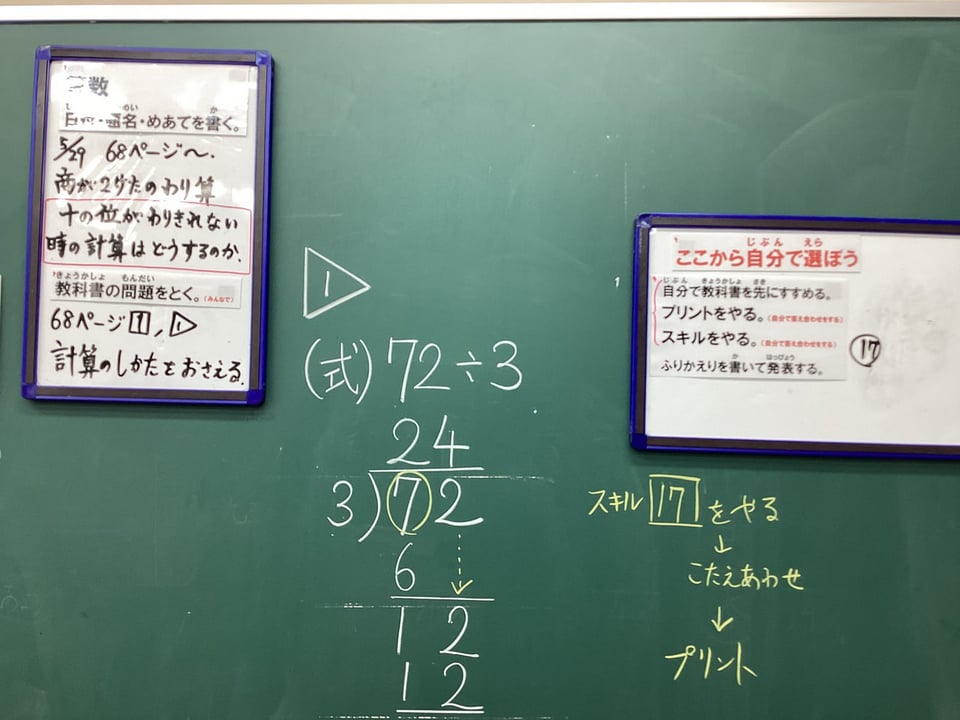 算数
日付・題名・めあてを書く。
5/29 68ページ〜.
商が2けたのわり算
十の位がわりきれない
時の計算はどうするのか.
教科書の問題をとく。(みんなで)
68ページ1,1
計算のしかたをおさえる.
1
(式)72÷3
24
3)72
6
12
12
ここから自分で選ぼう
自分で教科書を先にすすめる。
プリントをやる。(自分で答え合わせをする)
スキルをやる。(自分で答え合わせをする)
⑰
ふりかえりを書いて発表する。
スキル17をやる
↓
こたえあわせ
↓
プリント